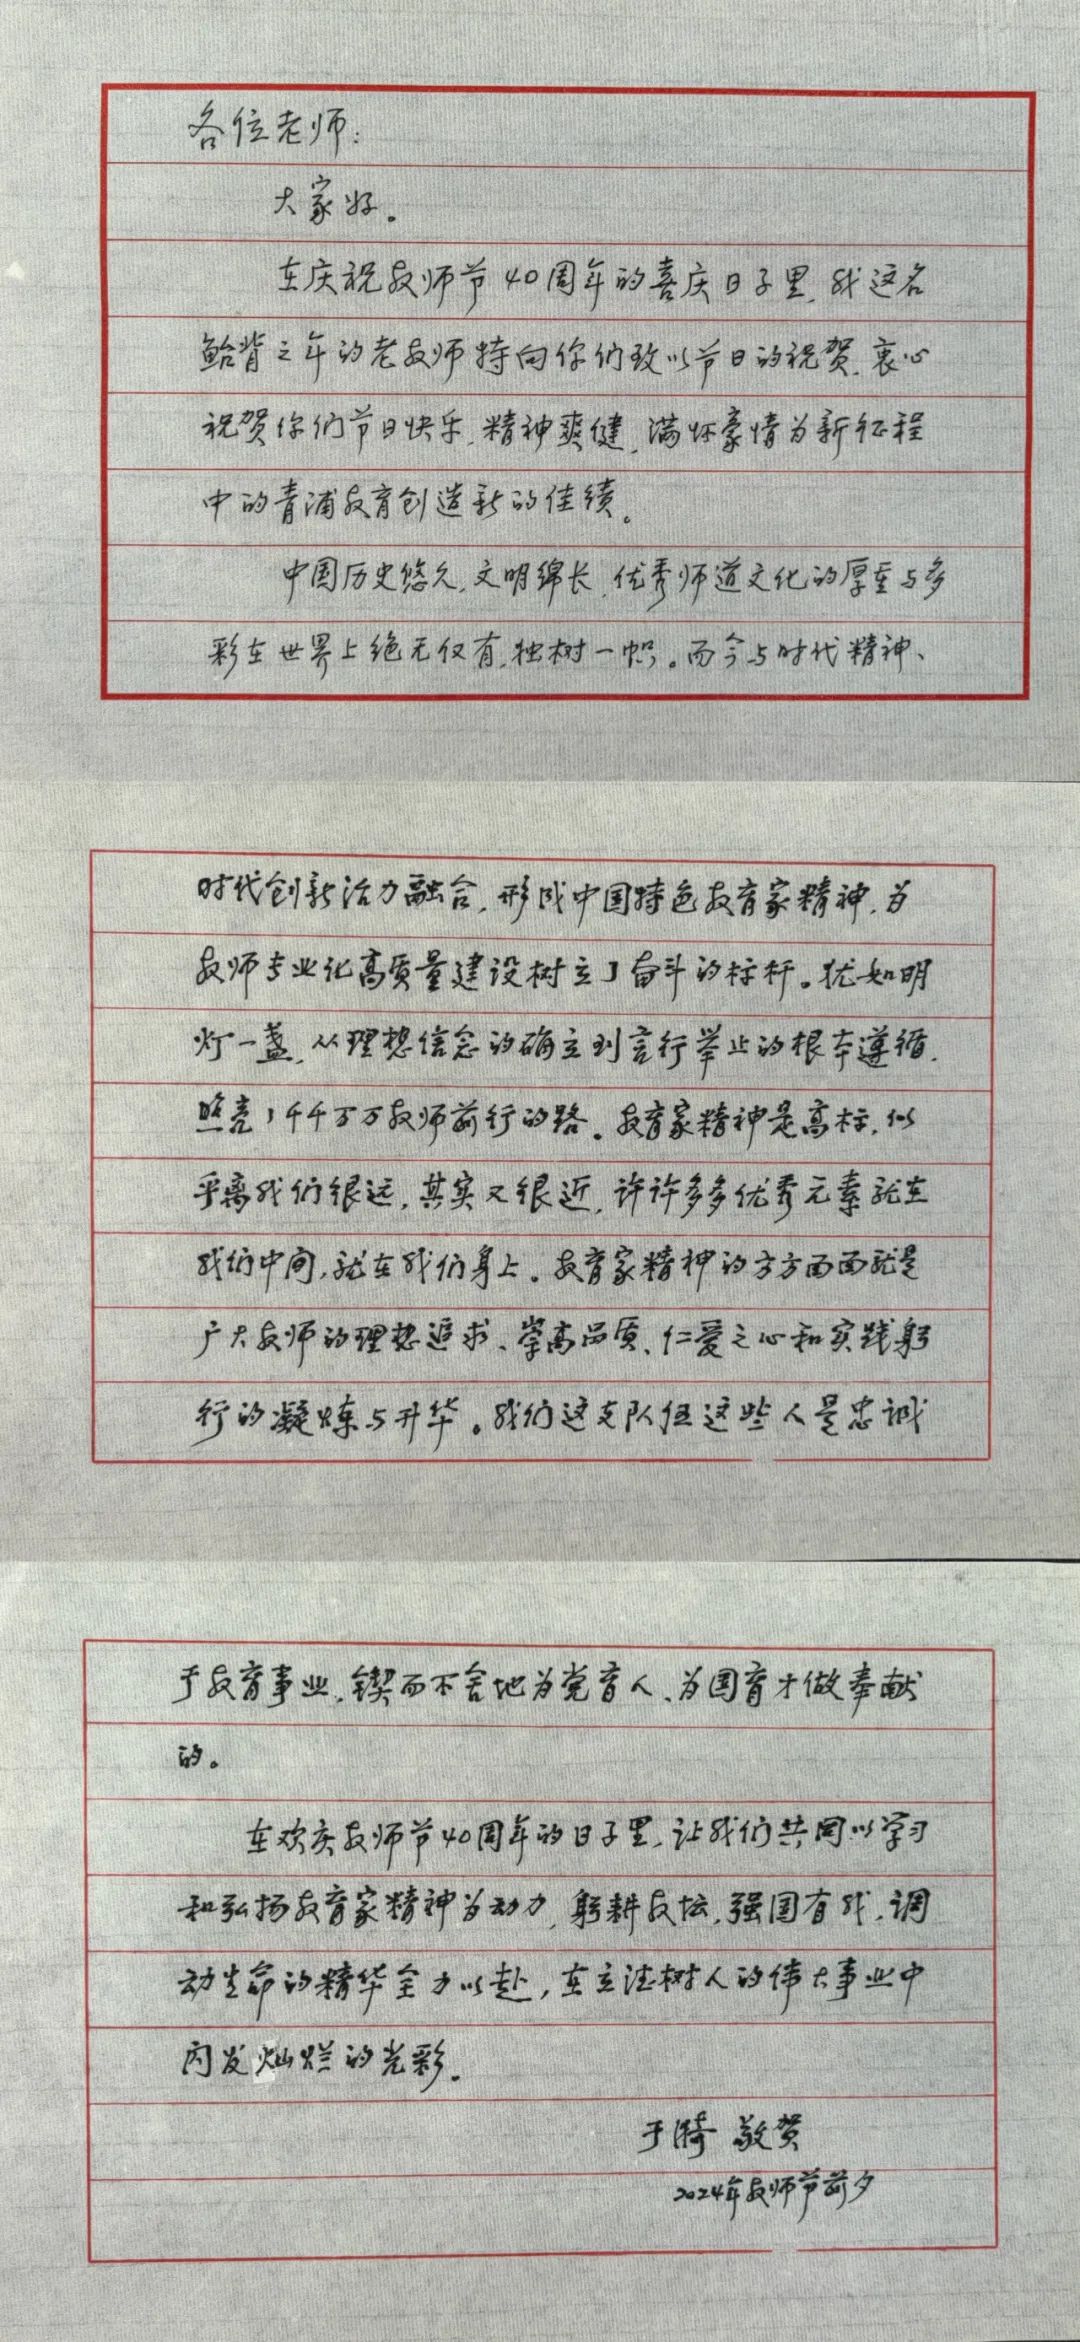 各位老师：
大家好。
在庆祝教师节40周年的喜庆日子里，我这名
鲐背之年的老教师特向你们致以节日的祝贺，衷心
祝贺你们节日快乐，精神爽健，满怀豪情为新征程
中的青浦教育创造新的佳绩。
中国历史悠久，文明绵长，优秀师道文化的厚重与多
彩在世界上绝无仅有，独树一帜。而今与时代精神、
时代创新活力融合，形成中国特色教育家精神，为
教师专业化高质量建设树立了奋斗的标杆。犹如明
灯一盏，从理想信念的确立到言行举止的根本遵循，
照亮了千千万万教师前行的路。教育家精神是高标，似
乎离我们很远，其实又很近，许许多多优秀元素就在
我们中间，就在我们身上。教育家精神的方方面面就是
广大教师的理想追求、崇高品质、仁爱之心和实践躬
行的凝炼与升华。我们这支队伍这些人是忠诚
于教育事业，锲而不舍地为党育人、为国育才做奉献
的。
在欢庆教师节40周年的日子里，让我们共同以学习
和弘扬教育家精神为动力，躬耕教坛，强国有我，调
动生命的精华全力以赴，在立德树人的伟大事业中
闪发灿烂的光彩。
于漪 敬贺
2024年教师节前夕